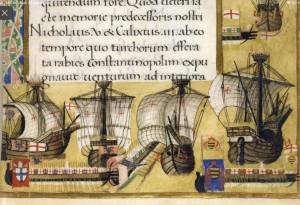 quirendum fore. Quod ceteri ia
cte memorie predecessoris nostri
Nicholaus .V. et Calixtus .iii. ab eo
tempore quo turchorum effera
ta rabies Constantinopolim expu
gnauit uenturum ad interiora